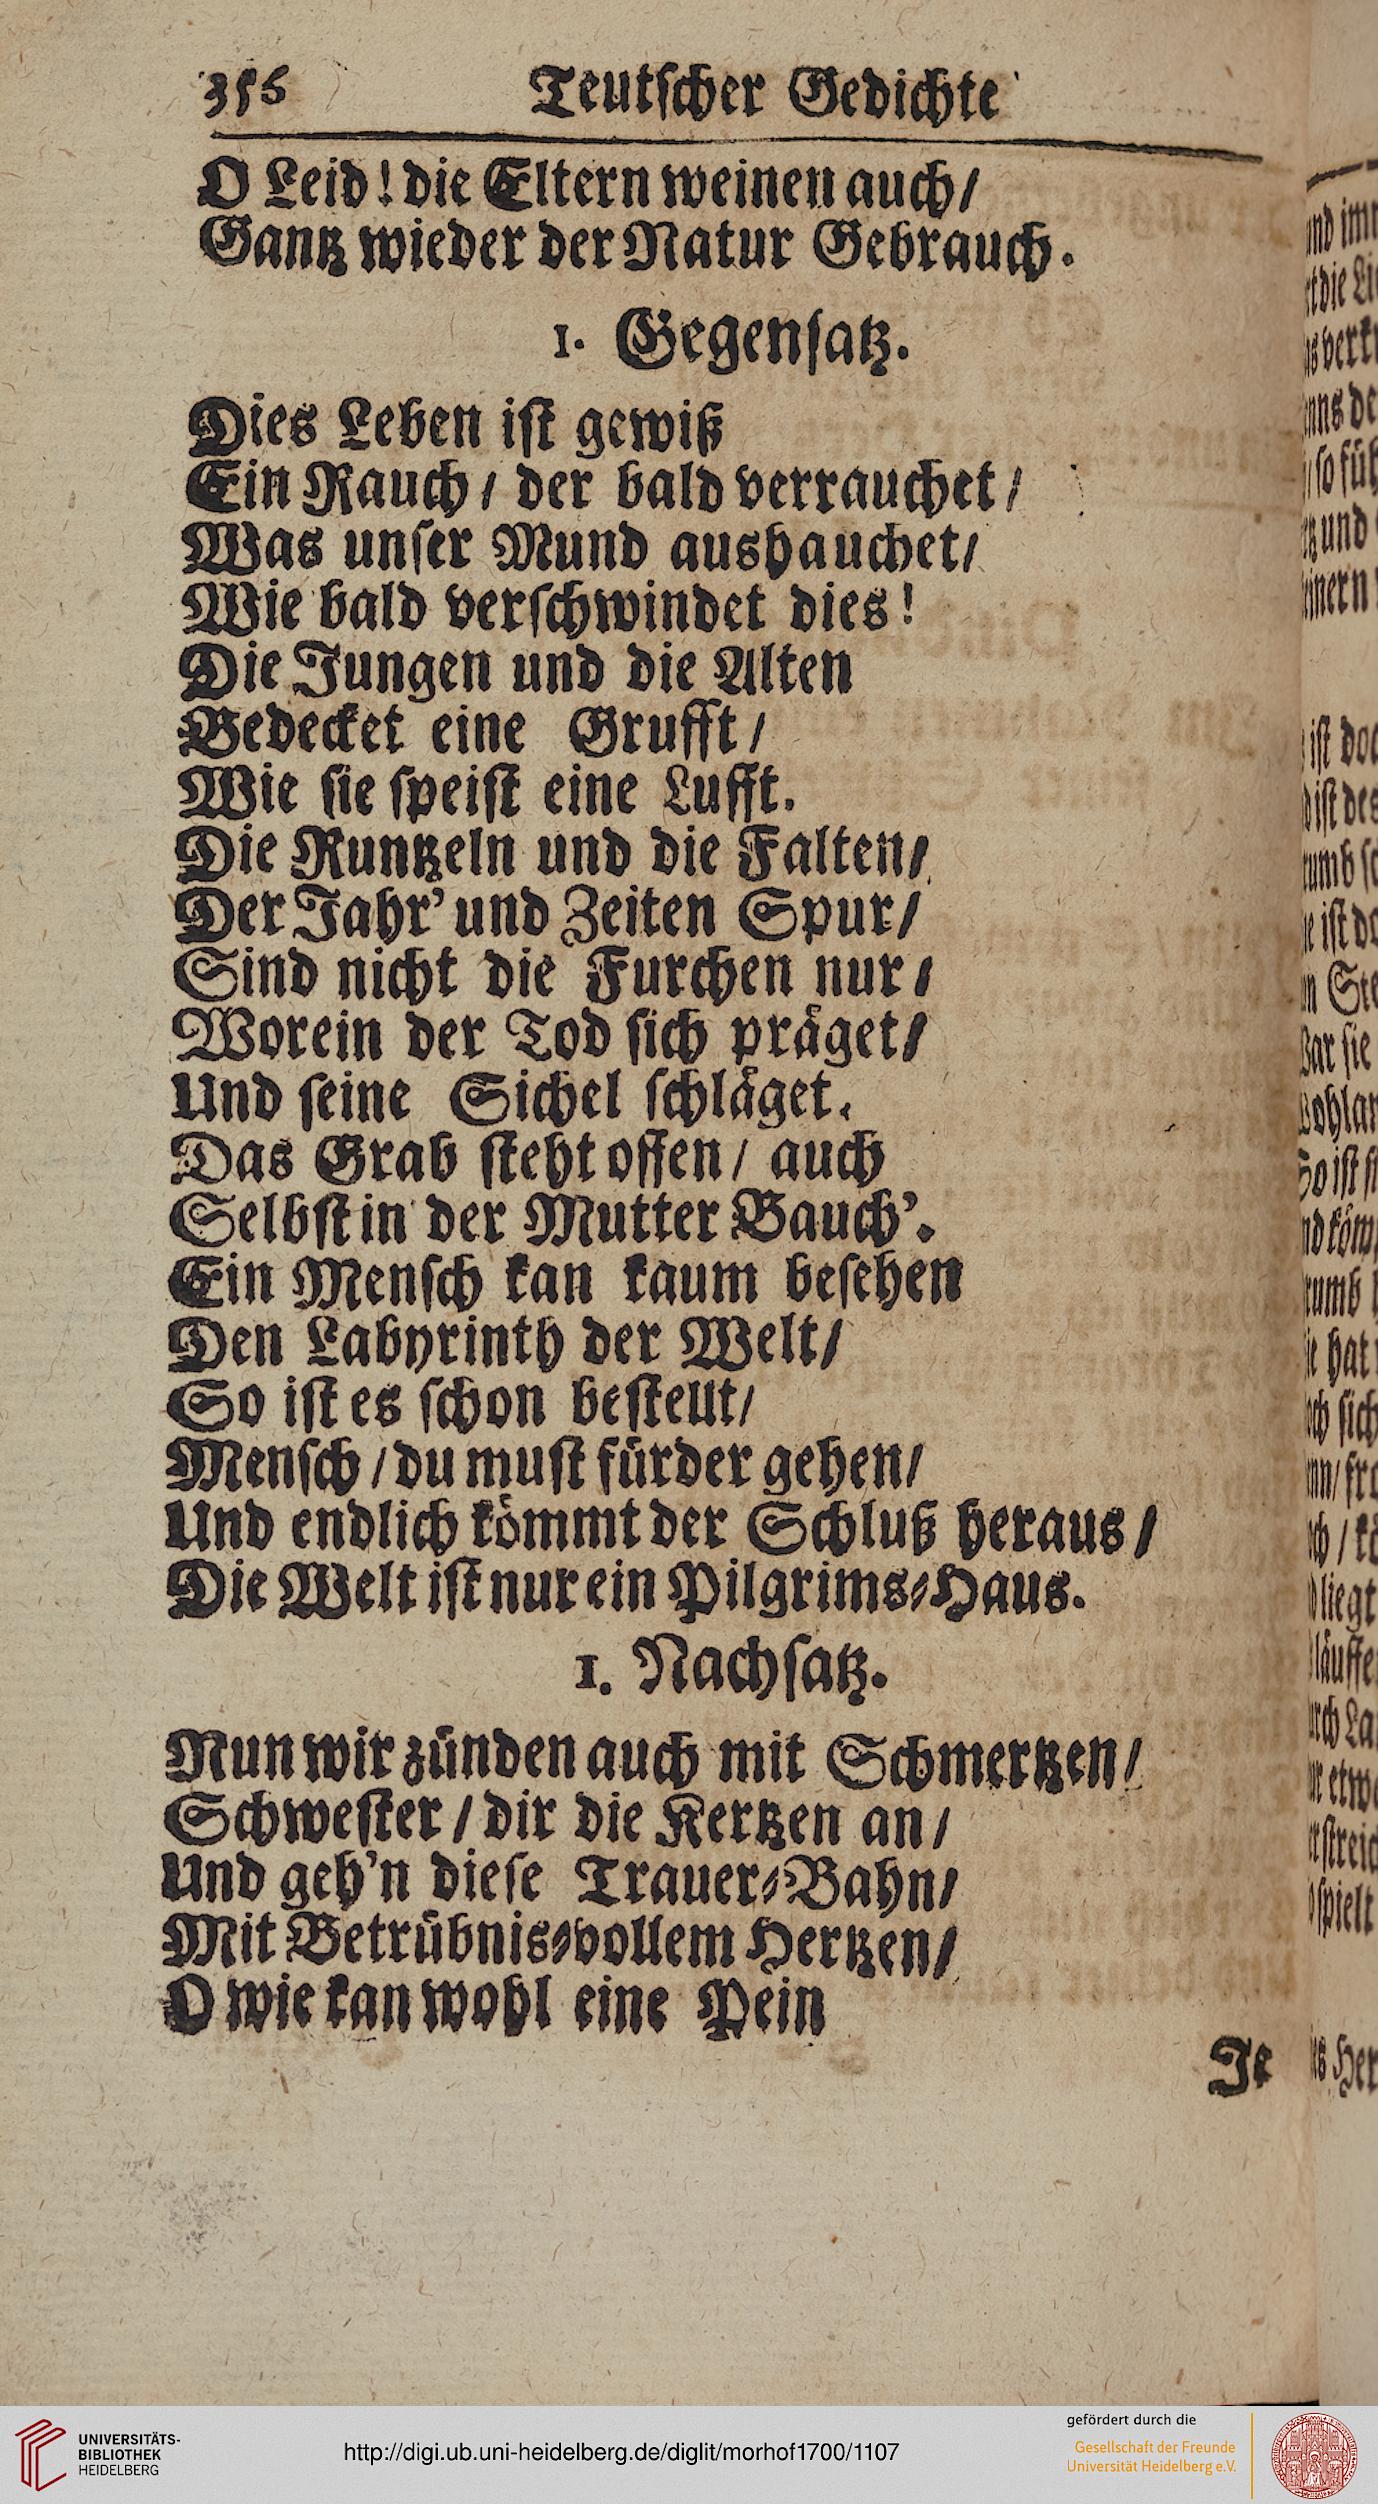 356 Teutſcher Gedichte
O Leid! die Eltern weinen auch/
Gantz wieder der Natur Gebrauch.
1. Gegenſatz.
Dies Leben iſt gewiß
Ein Rauch/ der bald verrauchet/
Was unſer Mund aushauchet/
Wie bald verſchwindet dies!
Die Jungen und die Alten
Bedecket eine Grufft/
Wie ſie ſpeiſt eine Lufft.
Die Runtzeln und die Falten/
Der Jahr' und Zeiten Spur/
Sind nicht die Furchen nur/
Worein der Tod ſich präget/
Und ſeine Sichel ſchläget.
Das Grab ſteht offen/ auch
Selbſt in der Mutter Bauch'.
Ein Menſch kan kaum beſehen
Den Labyrinth der Welt/
So iſt es ſchon beſtellt/
Menſch/ du muſt fürder gehen/
Und endlich kömmt der Schluß heraus/
Die Welt iſt nur ein Pilgrims-Haus.
1. Nachſatz.
Nun wir zünden auch mit Schmertzen/
Schweſter/ dir die Kertzen an/
Und geh'n dieſe Trauer-Bahn/
Mit Betrübnis-vollem Hertzen/
O wie kan wohl eine Pein
Je
UNIVERSITÄTS-
BIBLIOTHEK
HEIDELBERG
http://digi.ub.uni-heidelberg.de/diglit/morhof1700/1107
gefördert durch die
Gesellschaft der Freunde
Universität Heidelberg e.V.